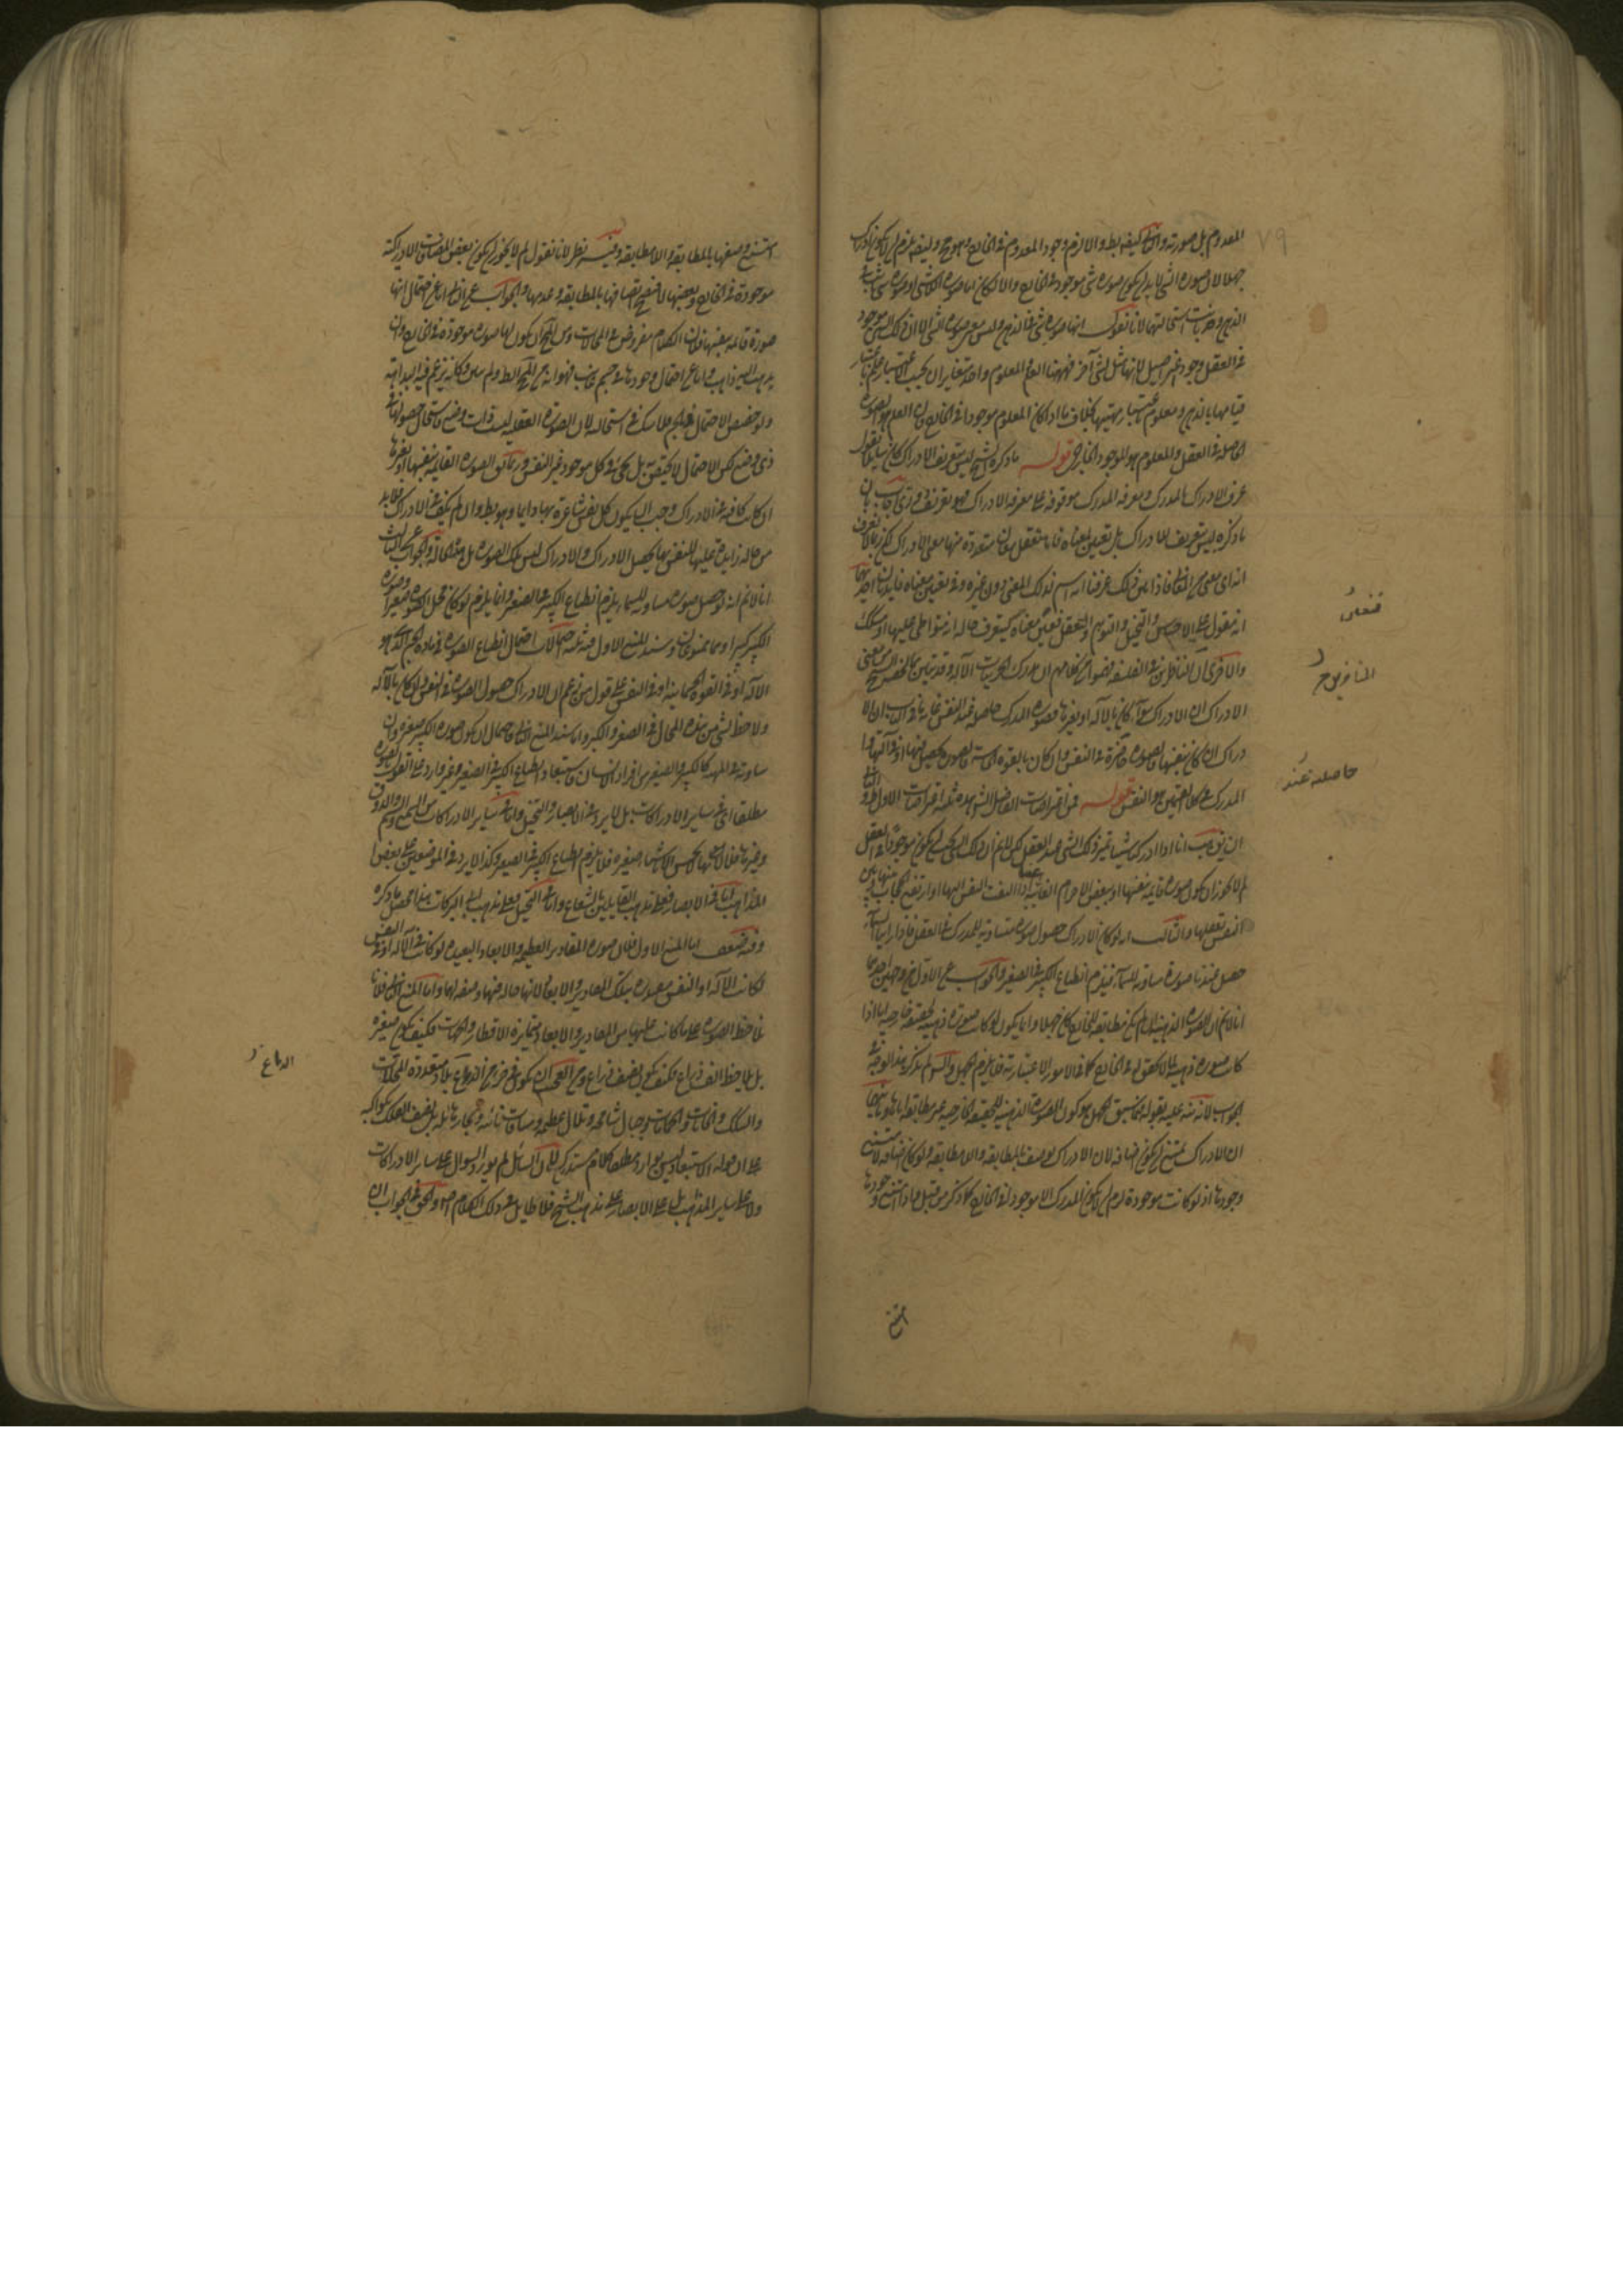 المعدوم بل صورته والثانى كيفية بط والا لزم وجود المعدوم فى الخارج وهو مح وايضا يلزم ان لا يكون ادراك
جهلا لان صورة الشى لا بد ان يكون صورة شى موجود فى الخارج والا لكان اما صورة اللاشى او صورة شى ثابت فى
الذهن وظهر استحالتها لانا نقول انها صورة شى فى الذهن وليس معنى صورة الشى الا ان ذلك الشى موجود
فى العقل وجود غير اصيل لا انها مثل لشى آخر فههنا العلم والمعلوم واحد متغايران بحسب الاعتبار علم باعتبار
قيامها بالذهن ومعلوم باعتبار ماهيتها بخلاف ما اذا كان المعلوم موجودا فى الخارج فان العلم هو الصورة
الحاصلة فى العقل والمعلوم هو الموجود الخارجى قوله ما ذكره الشيخ ليس تعريف الادراك كان سايلا يقول
عرف الادراك بالمدرك ومعرفة المدرك موقوفة على معرفة الادراك فهو تعريف دورى اجاب بان
ما ذكره ليس تعريف للادراك بل تعيين لمعناه فانا نتعقل معان متعددة منها معنى الادراك لكن ربما لا نعرف
انه اى معنى من المعانى فاذا عين ذلك عرفنا انه اسم لذلك المعنى دون غيره وفى تعيين معناه فايدتان احديهما
انه مقول على الاحساس والتخيل والتوهم والتعقل فعين معناه ليتعرف حاله انه متواطى عليها او مشكك
والاخرى ان الناظرين فى الفلسفة فهموا من كلامهم ان مدرك الجزئيات الآلة وقد تبين بما لخصه الشيخ من معنى
الادراك ان الادراك سواء كان بالآلة او بغيرها فصورة المدرك حاصلة عند النفس غاية ما فى الباب ان الا
دراك ان كان بنفسها فالصورة حاضرة فى النفس وان كان بالقوة الحاسة فالصورة تحصل فيها او فى آلتها وا
المدرك فى كلا القسمين هو النفس قوله فمن اعتراضات الفاضل الشارح هذه ثلثة اعتراضات الاول والثانى
ان يق هب انا اذا ادركنا شيئا تميز ذلك الشى عند العقل لكن لانم ان ذلك الشى يجب ان يكون موجودا فى العقل
لم لا يجوز ان يكون صورة قايمة بنفسها او ببعض الاجرام الغايبة عنا اذا التفت النفس اليها او ارتفع الحجاب بينها وبين
النفس تعقلها والثالث انه لو كان الادراك حصول صورة متساوية للمدرك فى العقل فاذا رأينا السماء
حصل عندنا صورة مساوية للسماء فيلزم انطباع الكبير فى الصغير والجواب عن الاول من وجهين احدهما
انا لانم ان الصورة الذهنية ان لم تكن مطابقة للخارج كان جهلا وانما يكون لو كانت صورة ذهنية لحقيقة خارجية اما اذا
كانت صورة ذهنية لما لا تحقق له فى الخارج كما فى الامور الاعتبارية فلا يلزم الجهل والش لم يذكر هذا الوجه فى
الجواب لانه نبه عليه بقوله فيما سبق الجهل هو كون الصورة الذهنية للحقيقة الخارجية غير مطابقة اياها وثانيهما
ان الادراك يمتنع ان يكون اضافة لان الادراك يوصف بالمطابقة واللامطابقة ولو كان اضافة لامتنع
وجودها اذ لو كانت موجودة لزم ان لا يكون المدرك الا موجودا فى الخارج كما ذكر من قبل فاذا امتنع وجودها
فنعلى
الناظرين
حاصلة عند
امتنع
امتنع وصفها بالمطابقة واللامطابقة وفيه نظر لانا نقول لم لا يجوز ان يكون بعض الاضافات الادراكية
موجودة فى الخارج وبعضها لا فيصح اتصافها بالمطابقة وعدمها والجواب عن الثانى اما عن احتمال انها
صورة قائمة بنفسها فلان الكلام مفروض فى المحالات ومن المح ان يكون لها صورة موجودة فى الخارج وان
يذهب اليه ذاهب واما عن احتمال وجودها فى جسم غايب فهو انه من المح ايضا ولم يبين وكانه يزعم فيه البداهة
ولو خصص الاحتمال بالجسم فلا شك فى استحالته لان الصورة العقلية ليست ذات وضع فاستحال حصولها فى
ذى وضع لكن الاحتمال لا يختص به بل يجرى فى كل موجود غير النفس وربما يق الصورة القائمة بنفسها او بغيرها
ان كانت كافية فى الادراك وجب ان يكون كل نفس شاعرة بها دايما وهو بط وان لم يكف فى الادراك فلا بد
من حالة زايدة عليها للنفس بها يحصل الادراك والادراك ليس تلك الصورة بل هذه الحالة والجواب عن الثالث
انا لانم انه لو حصل صورة مساوية للسماء يلزم انطباع الكبير فى الصغير وانما يلزم لو كان محل الصورة صغيرا وصورة
الكبير كبيرا وهما ممنوعان وسند المنع الاول فيه ثلثة احتمالات احتمال انطباع الصورة فى مادة الجسم الذى هو
الآلة او فى القوة الجسمانية او فى النفس على قول من زعم ان الادراك حصول الصورة فى النفس ولو كان بالآلة
ولا حظ لشى من هذه المحال فى الصغر والكبر واما سند المنع الثانى فاحتمال ان يكون صورة الكبير صغيرة وان
ساوته فى الماهية كالكبير والصغير من افراد الانسان فاستبعاد انطباع الكبير فى الصغير غير وارد على القول بالصورة
مطلقا اى فى ساير الادراكات بل لا يرد فى الابصار والتخيل واما فى ساير الادراكات من السمع والشم والذوق
وغيرها فلا لانها لا تحس الاشياء صغيرة فلا يلزم انطباع الكبير فى الصغير وكذا لا يرد فى الموضعين على بعض
المذاهب اما فى الابصار فعلى مذهب القايلين بالشعاع واما فى التخيل فعلى مذهب ابى البركات هذا محصل ما ذكره
وفيه ضعف اما المنع الاول فلان صورة المقادير العظيمة والابعاد البعيدة لو كانت فى الآلة او فى النفس
لكانت الآلة او النفس متقدرة بتلك المقادير والابعاد لانها حالة فيها وصفة لها واما المنع الثانى فلانا
نلاحظ الصورة على ما كانت عليها من المقادير والابعاد متمايزة الاقطار والجهات فكيف يكون صغيرة
بل يلاحظ الف ذراع فكيف يكون نصف ذراع ومن العجب ان يكون فى جزء من الدماغ بلاد متعددة المحلات
والسكك والخانات والحمامات وجبال شامخة وتلال عظيمة ومسافات نائية وبحار هائلة بل نصف الفلك بكواكبه
على ان قوله الاستبعاد ليس بوارد مطلقا كلام مستدرك لان السائل لم يورد السؤال على ساير الادراكات
ولا على ساير المذاهب بل على الابصار على مذهب الشيخ فلا طايل فى ذلك الكلام اصلا والحق فى الجواب ان
الدماغ